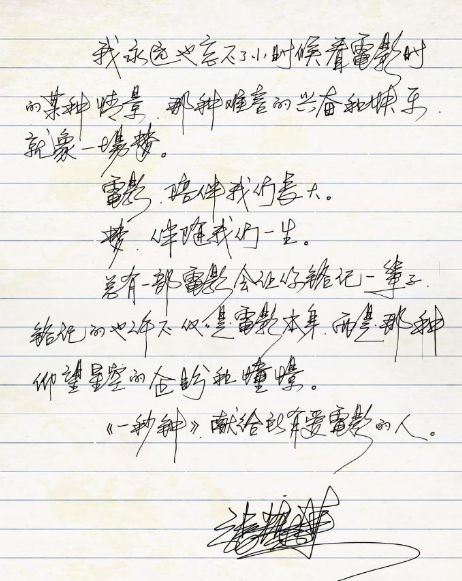 我永远也忘不了小时候看電影时
的某种情景,那种难言的兴奋和快乐,
就象一場梦。
電影,陪伴我们長大。
梦,伴随我们一生。
总有一部電影会让你铭记一輩子,
铭记的也许不仅是電影本身,而是那种
仰望星空的企盼和憧憬。
《一秒钟》,献给所有爱電影的人。